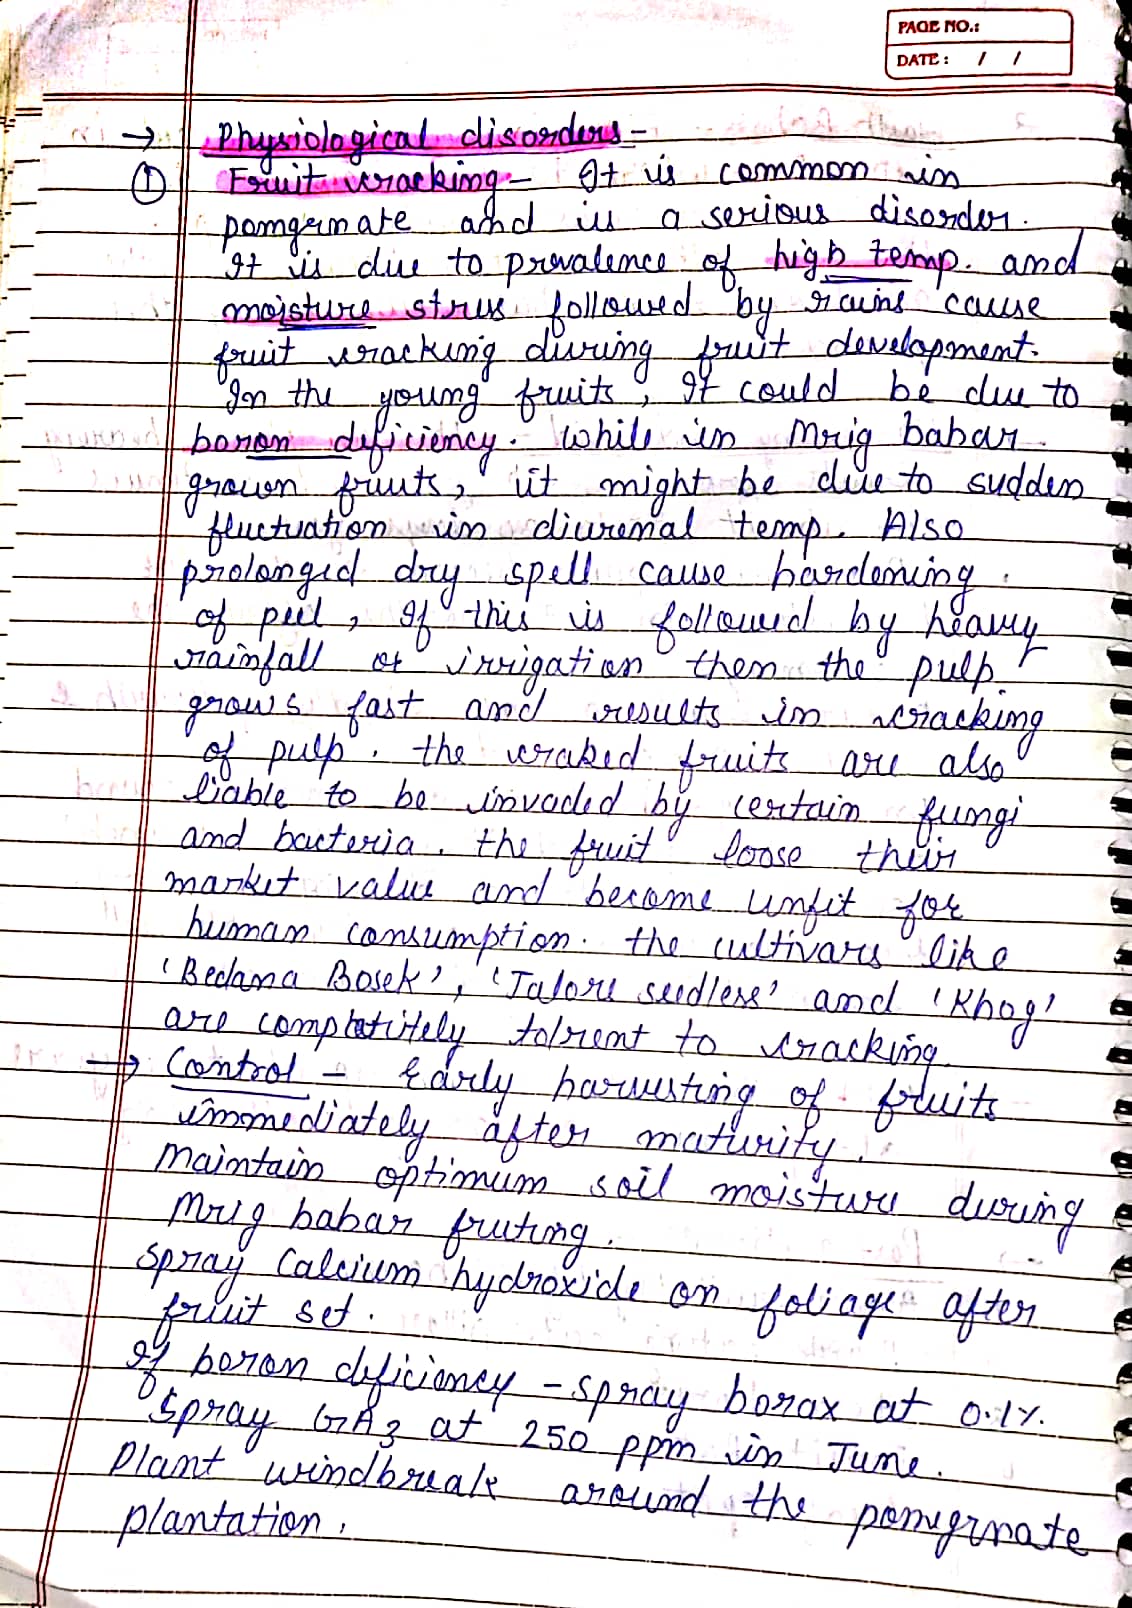 PAGE NO.:
DATE: / /
→ Physiological disorders -
① Fruit cracking - It is common in
pomgernate and is a serious disorder.
It is due to prevalence of high temp. and
moisture stress followed by rains cause
fruit cracking during fruit development.
In the young fruits, It could be due to
boron deficiency. While in Mrig bahar
grown fruits, it might be due to sudden
fluctuation in diurenal temp. Also
prolonged dry spell cause hardening
of peel, If this is followed by heavy
rainfall or irrigation then the pulp
grows fast and results in cracking
of pulp. the craked fruits are also
liable to be invaded by certain fungi
and bacteria. the fruit loose their
market value and become unfit for
human consumption. the cultivars like
'Bedana Bosek', 'Jalore seedless' and 'Khog'
are comptatitely tolrent to cracking.
→ Control - Early harvesting of fruits
immediately after maturity.
Maintain optimum soil moisture during
Mrig bahar fruting.
Spray Calcium hydroxide on foliage after
fruit set.
If boron deficiency - spray borax at 0.1%.
Spray GA3 at 250 ppm in June.
Plant windbreak around the pomegrnate
plantation.